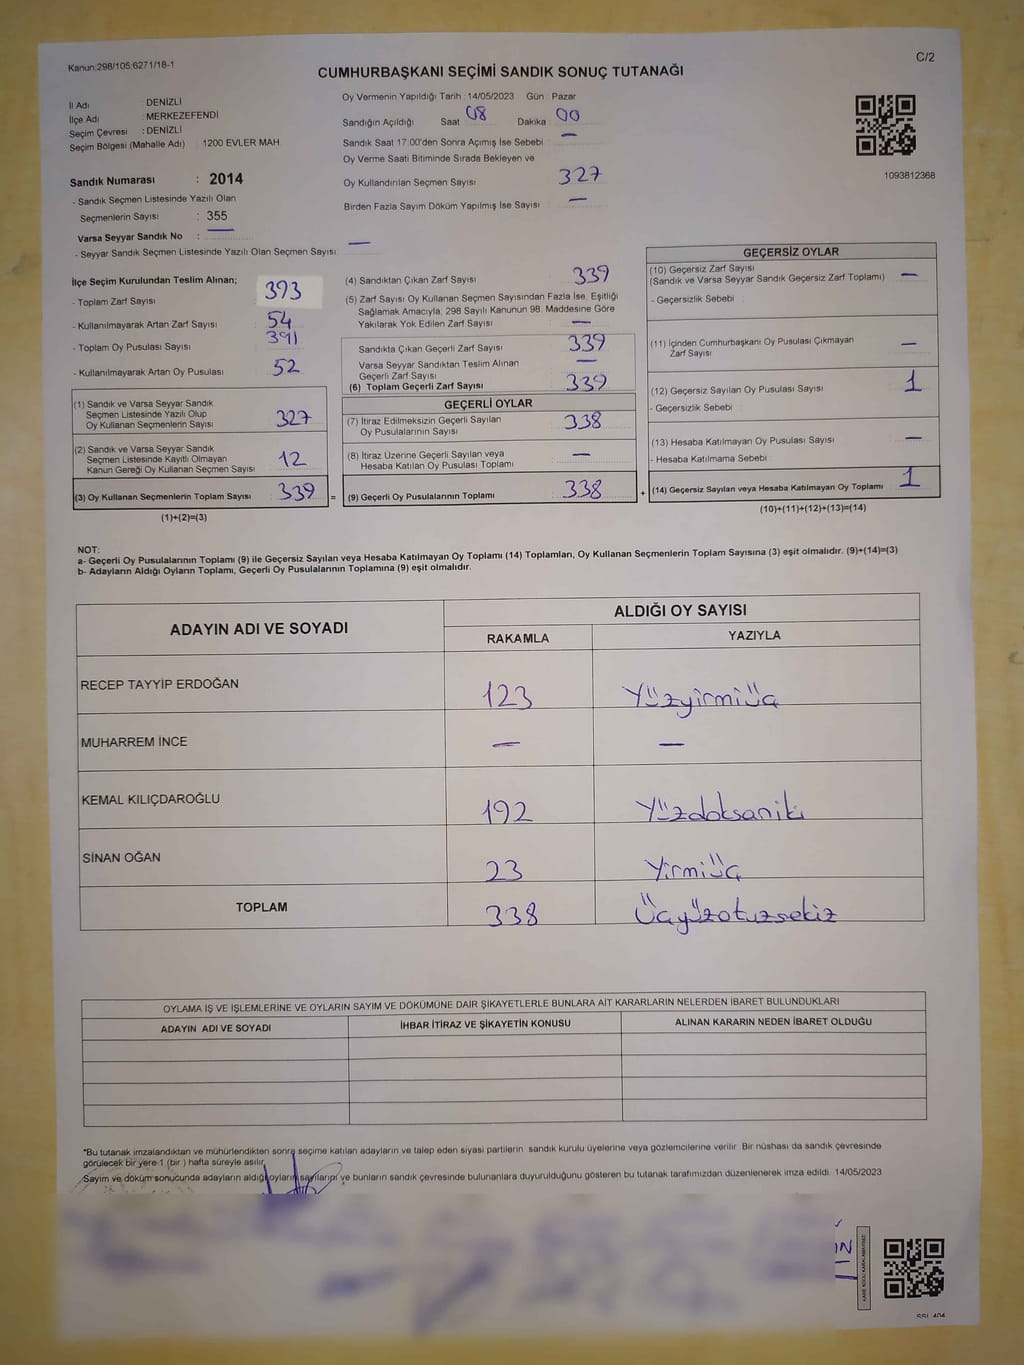 Kanun:298/105;6271/18-1
C/2
CUMHURBAŞKANI SEÇİMİ SANDIK SONUÇ TUTANAĞI
İl Adı DENİZLİ
İlçe Adı : MERKEZEFENDİ
Seçim Çevresi : DENİZLİ
Seçim Bölgesi (Mahalle Adı) : 1200 EVLER MAH.
Sandık Numarası : 2014
- Sandık Seçmen Listesinde Yazılı Olan
Seçmenlerin Sayısı : 355
Varsa Seyyar Sandık No : —
- Seyyar Sandık Seçmen Listesinde Yazılı Olan Seçmen Sayısı: —
Oy Vermenin Yapıldığı Tarih : 14/05/2023 Gün : Pazar
Sandığın Açıldığı Saat : 08 Dakika : 00
Sandık Saat 17:00'den Sonra Açımış İse Sebebi : —
Oy Verme Saati Bitiminde Sırada Bekleyen ve
Oy Kullandırılan Seçmen Sayısı : 327
Birden Fazla Sayım Döküm Yapılmış İse Sayısı : —
1093812368
İlçe Seçim Kurulundan Teslim Alınan;
- Toplam Zarf Sayısı : 393
- Kullanılmayarak Artan Zarf Sayısı : 54
- Toplam Oy Pusulası Sayısı : 391
- Kullanılmayarak Artan Oy Pusulası : 52
(1) Sandık ve Varsa Seyyar Sandık
Seçmen Listesinde Yazılı Olup
Oy Kullanan Seçmenlerin Sayısı : 327
(2) Sandık ve Varsa Seyyar Sandık
Seçmen Listesinde Kayıtlı Olmayan
Kanun Gereği Oy Kullanan Seçmen Sayısı : 12
(3) Oy Kullanan Seçmenlerin Toplam Sayısı : 339 =
(1)+(2)=(3)
(4) Sandıktan Çıkan Zarf Sayısı : 339
(5) Zarf Sayısı Oy Kullanan Seçmen Sayısından Fazla İse, Eşitliği
Sağlamak Amacıyla; 298 Sayılı Kanunun 98. Maddesine Göre
Yakılarak Yok Edilen Zarf Sayısı : —
Sandıkta Çıkan Geçerli Zarf Sayısı : 339
Varsa Seyyar Sandıktan Teslim Alınan
Geçerli Zarf Sayısı : —
(6) Toplam Geçerli Zarf Sayısı : 339
GEÇERLİ OYLAR
(7) İtiraz Edilmeksizin Geçerli Sayılan
Oy Pusulalarının Sayısı : 338
(8) İtiraz Üzerine Geçerli Sayılan veya
Hesaba Katılan Oy Pusulası Toplamı : —
(9) Geçerli Oy Pusulalarının Toplamı : 338 +
GEÇERSİZ OYLAR
(10) Geçersiz Zarf Sayısı
(Sandık ve Varsa Seyyar Sandık Geçersiz Zarf Toplamı) : —
- Geçersizlik Sebebi :
(11) İçinden Cumhurbaşkanı Oy Pusulası Çıkmayan
Zarf Sayısı : —
(12) Geçersiz Sayılan Oy Pusulası Sayısı : 1
- Geçersizlik Sebebi :
(13) Hesaba Katılmayan Oy Pusulası Sayısı : —
- Hesaba Katılmama Sebebi :
(14) Geçersiz Sayılan veya Hesaba Katılmayan Oy Toplamı : 1
(10)+(11)+(12)+(13)=(14)
NOT:
a- Geçerli Oy Pusulalarının Toplamı (9) ile Geçersiz Sayılan veya Hesaba Katılmayan Oy Toplamı (14) Toplamları, Oy Kullanan Seçmenlerin Toplam Sayısına (3) eşit olmalıdır. (9)+(14)=(3)
b- Adayların Aldığı Oyların Toplamı, Geçerli Oy Pusulalarının Toplamına (9) eşit olmalıdır.
ADAYIN ADI VE SOYADI ALDIĞI OY SAYISI
RAKAMLA YAZIYLA
RECEP TAYYİP ERDOĞAN 123 Yüzyirmiüç
MUHARREM İNCE — —
KEMAL KILIÇDAROĞLU 192 Yüzdoksaniki
SİNAN OĞAN 23 Yirmiüç
TOPLAM 338 Üçyüzotuzsekiz
OYLAMA İŞ VE İŞLEMLERİNE VE OYLARIN SAYIM VE DÖKÜMÜNE DAİR ŞİKAYETLERLE BUNLARA AİT KARARLARIN NELERDEN İBARET BULUNDUKLARI
ADAYIN ADI VE SOYADI İHBAR İTİRAZ VE ŞİKAYETİN KONUSU ALINAN KARARIN NEDEN İBARET OLDUĞU
*Bu tutanak imzalandıktan ve mühürlendikten sonra seçime katılan adayların ve talep eden siyasi partilerin sandık kurulu üyelerine veya gözlemcilerine verilir. Bir nüshası da sandık çevresinde
görülecek bir yere 1 (bir ) hafta süreyle asılır.
Sayım ve döküm sonucunda adayların aldığı oyların sayılarını ve bunların sandık çevresinde bulunanlara duyurulduğunu gösteren bu tutanak tarafımızdan düzenlenerek imza edildi. 14/05/2023